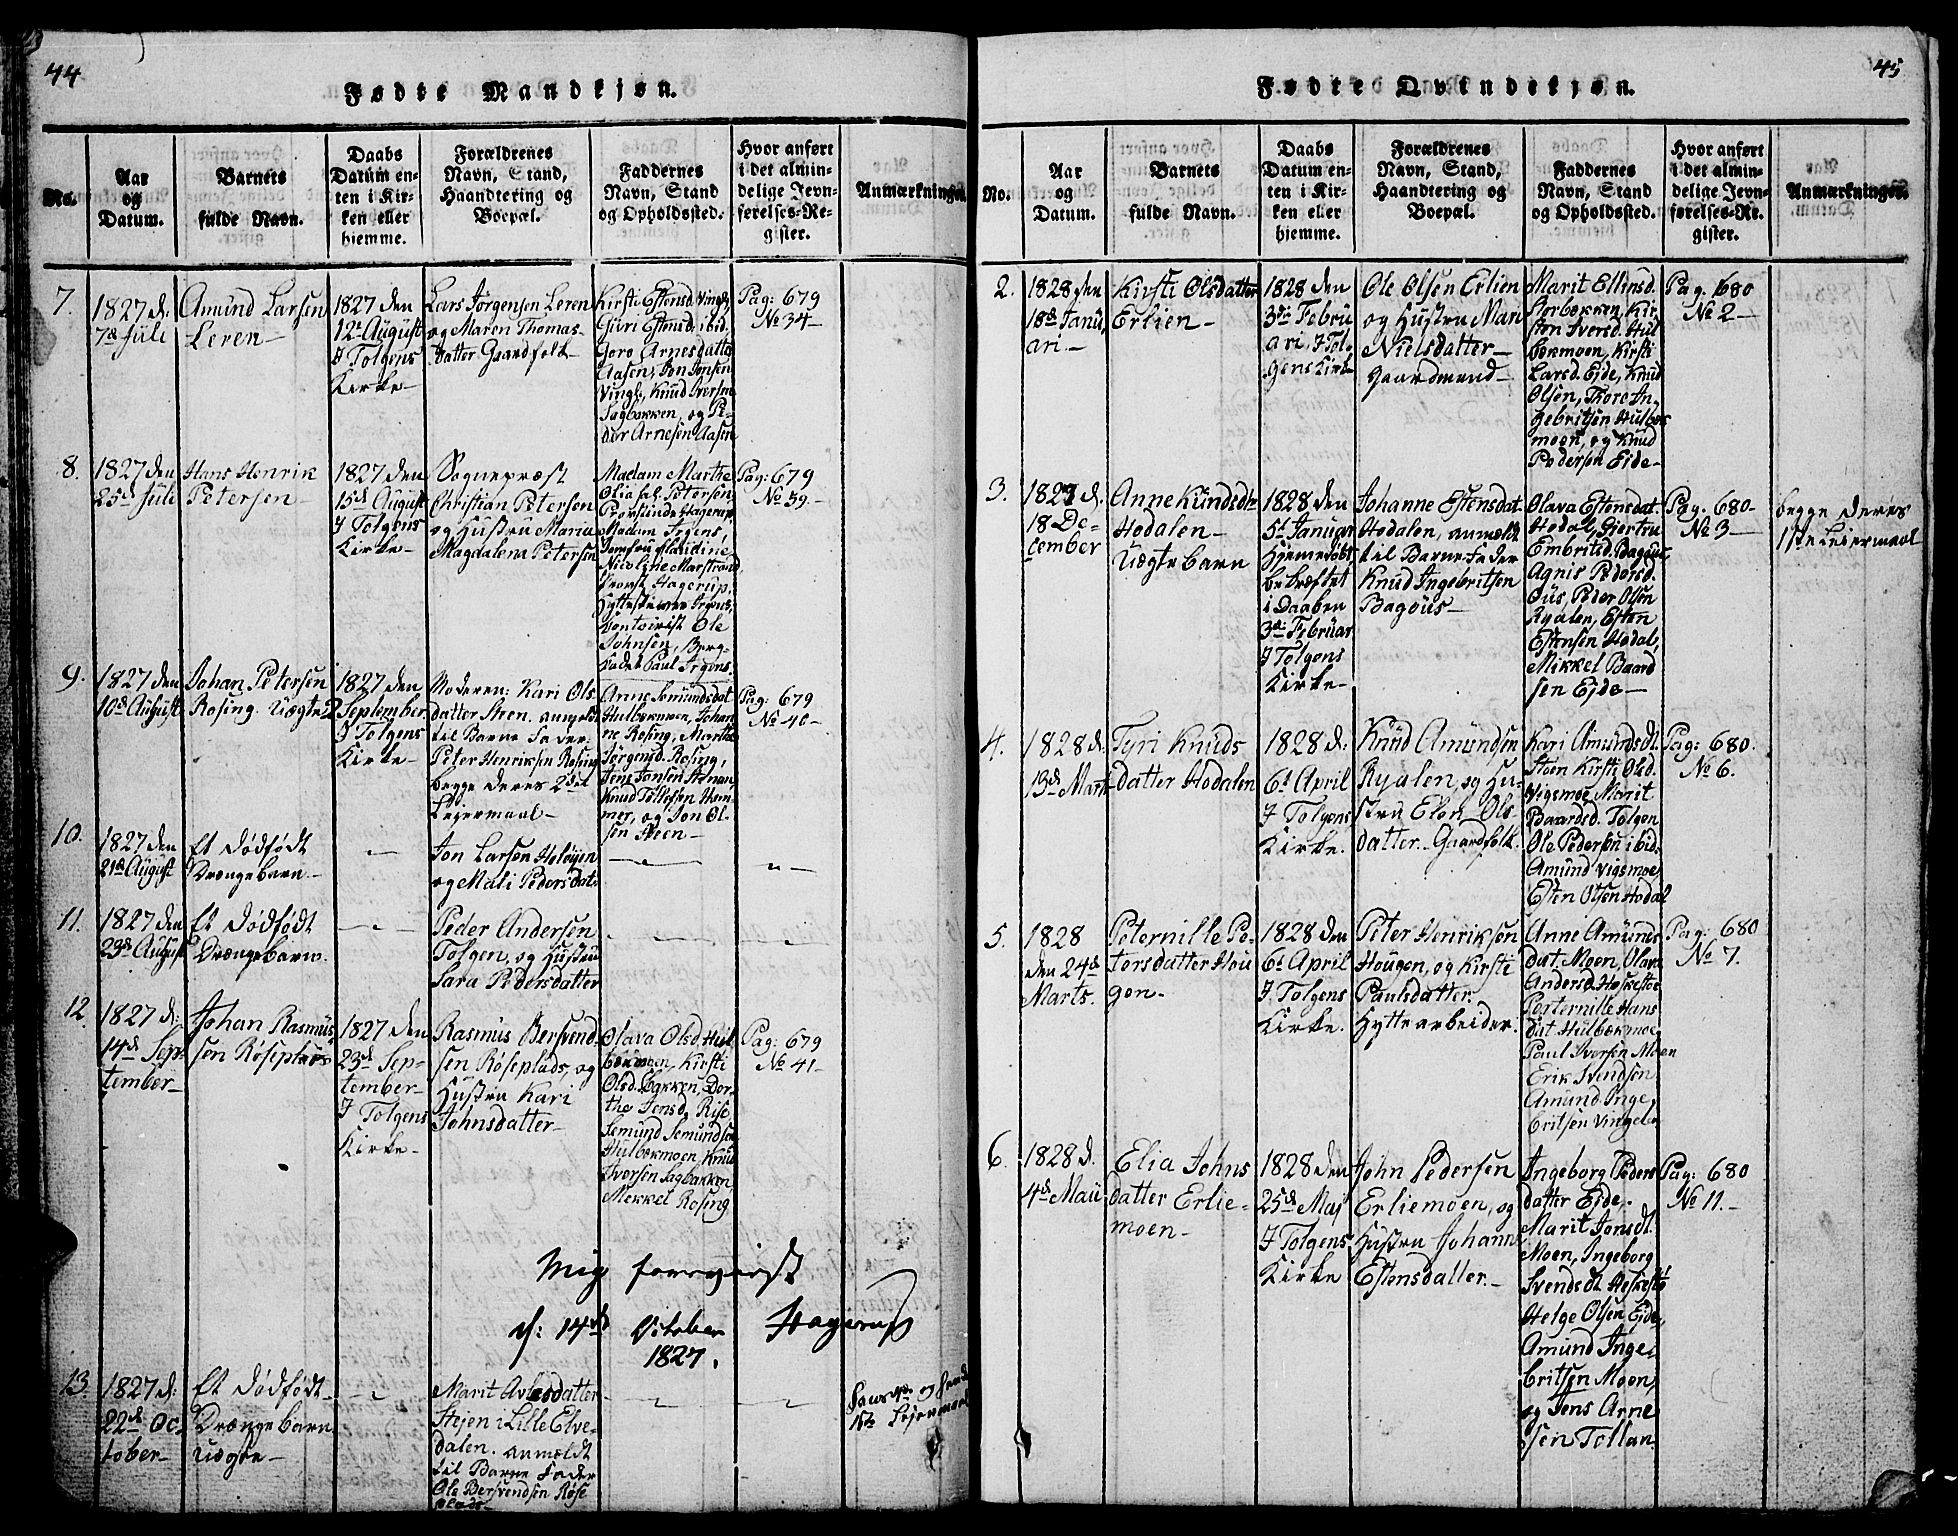 44
Fødte Mandkjøn.
No.
Aar
og
Datum.
Barnets
fulde Navn.
Daabs
Datum en-
ten i Kir-
ken eller
hiemme.
Forældrenes
Navn, Stand,
Haandtering og
Boepæl.
Faddernes
Navn, Stand
og Opholdssted.
Hvor anført
i det almin-
delige Jevn-
førelses-Re-
gister.
Anmærkninger.
7.
1827 d.
7de Juli
Amund Larsen
Leren
1827 den
12te August
I Tolgens
Kirke
Lars Jørgensen Leren
og Maren Thomas-
datter Gaardfolk
Kirsti Estensd. Vingl,
Guri Estensd. ibid.
Goro Arnesdatter
Aasen, Jon Jonsen
Vingl, Knud Iversen
Sagbakken, og Pe-
der Arnesen Aasen
Pag: 679
No 34
8.
1827 den
25de Juli
Hans Henrik
Petersen
1827 den
15de August
I Tolgens
Kirke
Sognepræst
Christian Petersen
og Hustru Maria
Magdalena Petersen
Madam Marthe
Olia sal. Petersen,
Provstinde Hagerup,
Madam Irgens,
Jomfru Claudine
Nicoline Marstrand,
Provst Hagerup,
Hytteskriver Irgens,
Ole
Johnsen, Berg-
kadet Paul Irgens.
Pag: 679
No 39
9.
1827 den
10de August
Johan Petersen
Rosing. Uægte
1827 den
2 September
I Tolgens
Kirke
Moderen: Kari Ols-
datter Stren. anmeldt
til Barne Fader
Peter Henriksen Rosing
begge deres 2det
Leiermaal
Anne Semundsdat
Hulbekmoen, Johan-
ne Rosing, Marthe
Jørgensd. Rosing,
Jens Jonsen Honan,
Knud Tollefsen Ham-
mer, og Jon Ol-
sen Neen
Pag: 679
No 40
10.
1827 den
21de August
Et dødfødt
Drængebarn
Jon Larsen Heløyen
og Mali Pedersdat.
11.
1827 den
23de August
Et dødfødt
Drængebarn.
Peder Andersen
Tolgen, og Hustru
Sara Pedersdatter
12.
1827 d:
14de Sep-
tember
Johan Rasmus-
sen Røseplads
1827 den
23de Sep-
tember
I Tolgens
Kirke
Rasmus Bersvend-
sen Røseplads, og
Hustru Kari
Johnsdatter
Olava Olsd. Hul-
bekmoen, Kirsti
Olsd. Bakken, Dor-
the Jensd. Rise,
Semund Semundsen
Hulbekmoen, Knud
Iversen Sagbakken
Mekkel Rosing
Pag: 679
No 41
Mig foreviist
d: 14de October
1827. Hagerup
13.
1827 d:
22de Oc-
tober
Et dødfødt
Drængebarn
uægte
Marit Avlesdatter
Stejen i Lille Elve-
dalen. anmældt
til Barne Fader
Ole Bersvendsen Røse
plads
Leiermaal
45
Fødte Qvindekjøn.
No.
Aar
og
Datum.
Barnets
fulde Navn.
Daabs
Datum en-
ten i Kir-
ken eller
hiemme.
Forældrenes
Navn, Stand,
Haandtering og
Boepæl.
Faddernes
Navn, Stand
og Opholdssted.
Hvor anført
i det almin-
delige Jevn-
førelses-Re-
gister.
Anmærkninger.
2.
1828 den
18de Janu-
ari.
Kirsti Olsdatter
Erlien
1828 den
3die Febru
ari, I Tol-
gens Kirke
Ole Olsen Erlien
og Hustru Mari
Nielsdatter
Gaardmand
Marit Ellinsd.
Storbekken, Kir-
sten Iversd. Hul
bekmoen, Kirsti
Larsd. Eide, Knud
Olsen, Thore In-
gebritsen Hulbek
moen, og Knud
Pedersen Eide
Pag. 680
No 2
3.
1827 d.
18 De-
cember
Anne Knudsdtr
Hodalen
Uægte barn
1828 den
5te Januar
hjemedøbt
bekræftet
i Daaben
3die Februar
I Tolgens
Kirke
Johanne Estensdat.
Hodalen, anmeldt
til Barne Fader
Knud Ingebritsen
Bagous
Olava Estensdat.
Hodal, Giertru
Embritsd. Bagous
Agnis Pedersd.
Ous, Peder Olsen
Ryalen, Esten
Estensen Hodal,
Mikkel Baard
sen Eide
Pag. 680
No 3
begge deres
1ste Leiermaal
4.
1828 d:
13de Marts
Tyri Knuds
datter Hodalen
1828 d:
6te April
I Tolgens
Kirke.
Knud Amundsen
Ryalen, og Hu-
stru Elen Ols-
datter. Gaardfolk.
Kari Amundsdt.
Steen Kirsti Olsd.
Vigsmoe Marit
Baardsd. Tolgen
Ole Pedersen ibid.
Amund Vigsmoe,
Esten Olsen Hodal
Pag: 680.
No 6.
5.
1828
den 24de
Marts.
Peternille Pe-
tersdatter Hou-
gen
1828 den
6te April
I Tolgens
Kirke.
Peter Henriksen
Hougen, og Kirsti
Paulsdatter.
Hyttearbeider.
Anne Amunds
dat. Moen, Olava
Andersd. Heskestøe
Peternille Hans
dat. Hulbekmoe
Paul Iversen Moen
Erik Svendsen
Amund Inge-
britsen Vingelen
Pag: 680
No 7.
6.
1828 d.
4de Maii
Elia Johns
datter Erlie-
moen
1828 den
25de Maj
I Tolgens
Kirke
John Pedersen
Erliemoen, og
Hustru Johanne
Estensdatter.
Ingeborg Peders
datter Eide,
Marit Jonsdt.
Moen, Ingeborg
Svendsdt. Heskestø
Helge Olsen Eide,
Amund Inge-
britsen Moen,
og Jens Arne
sen Tollan
Pag: 680
No 11.